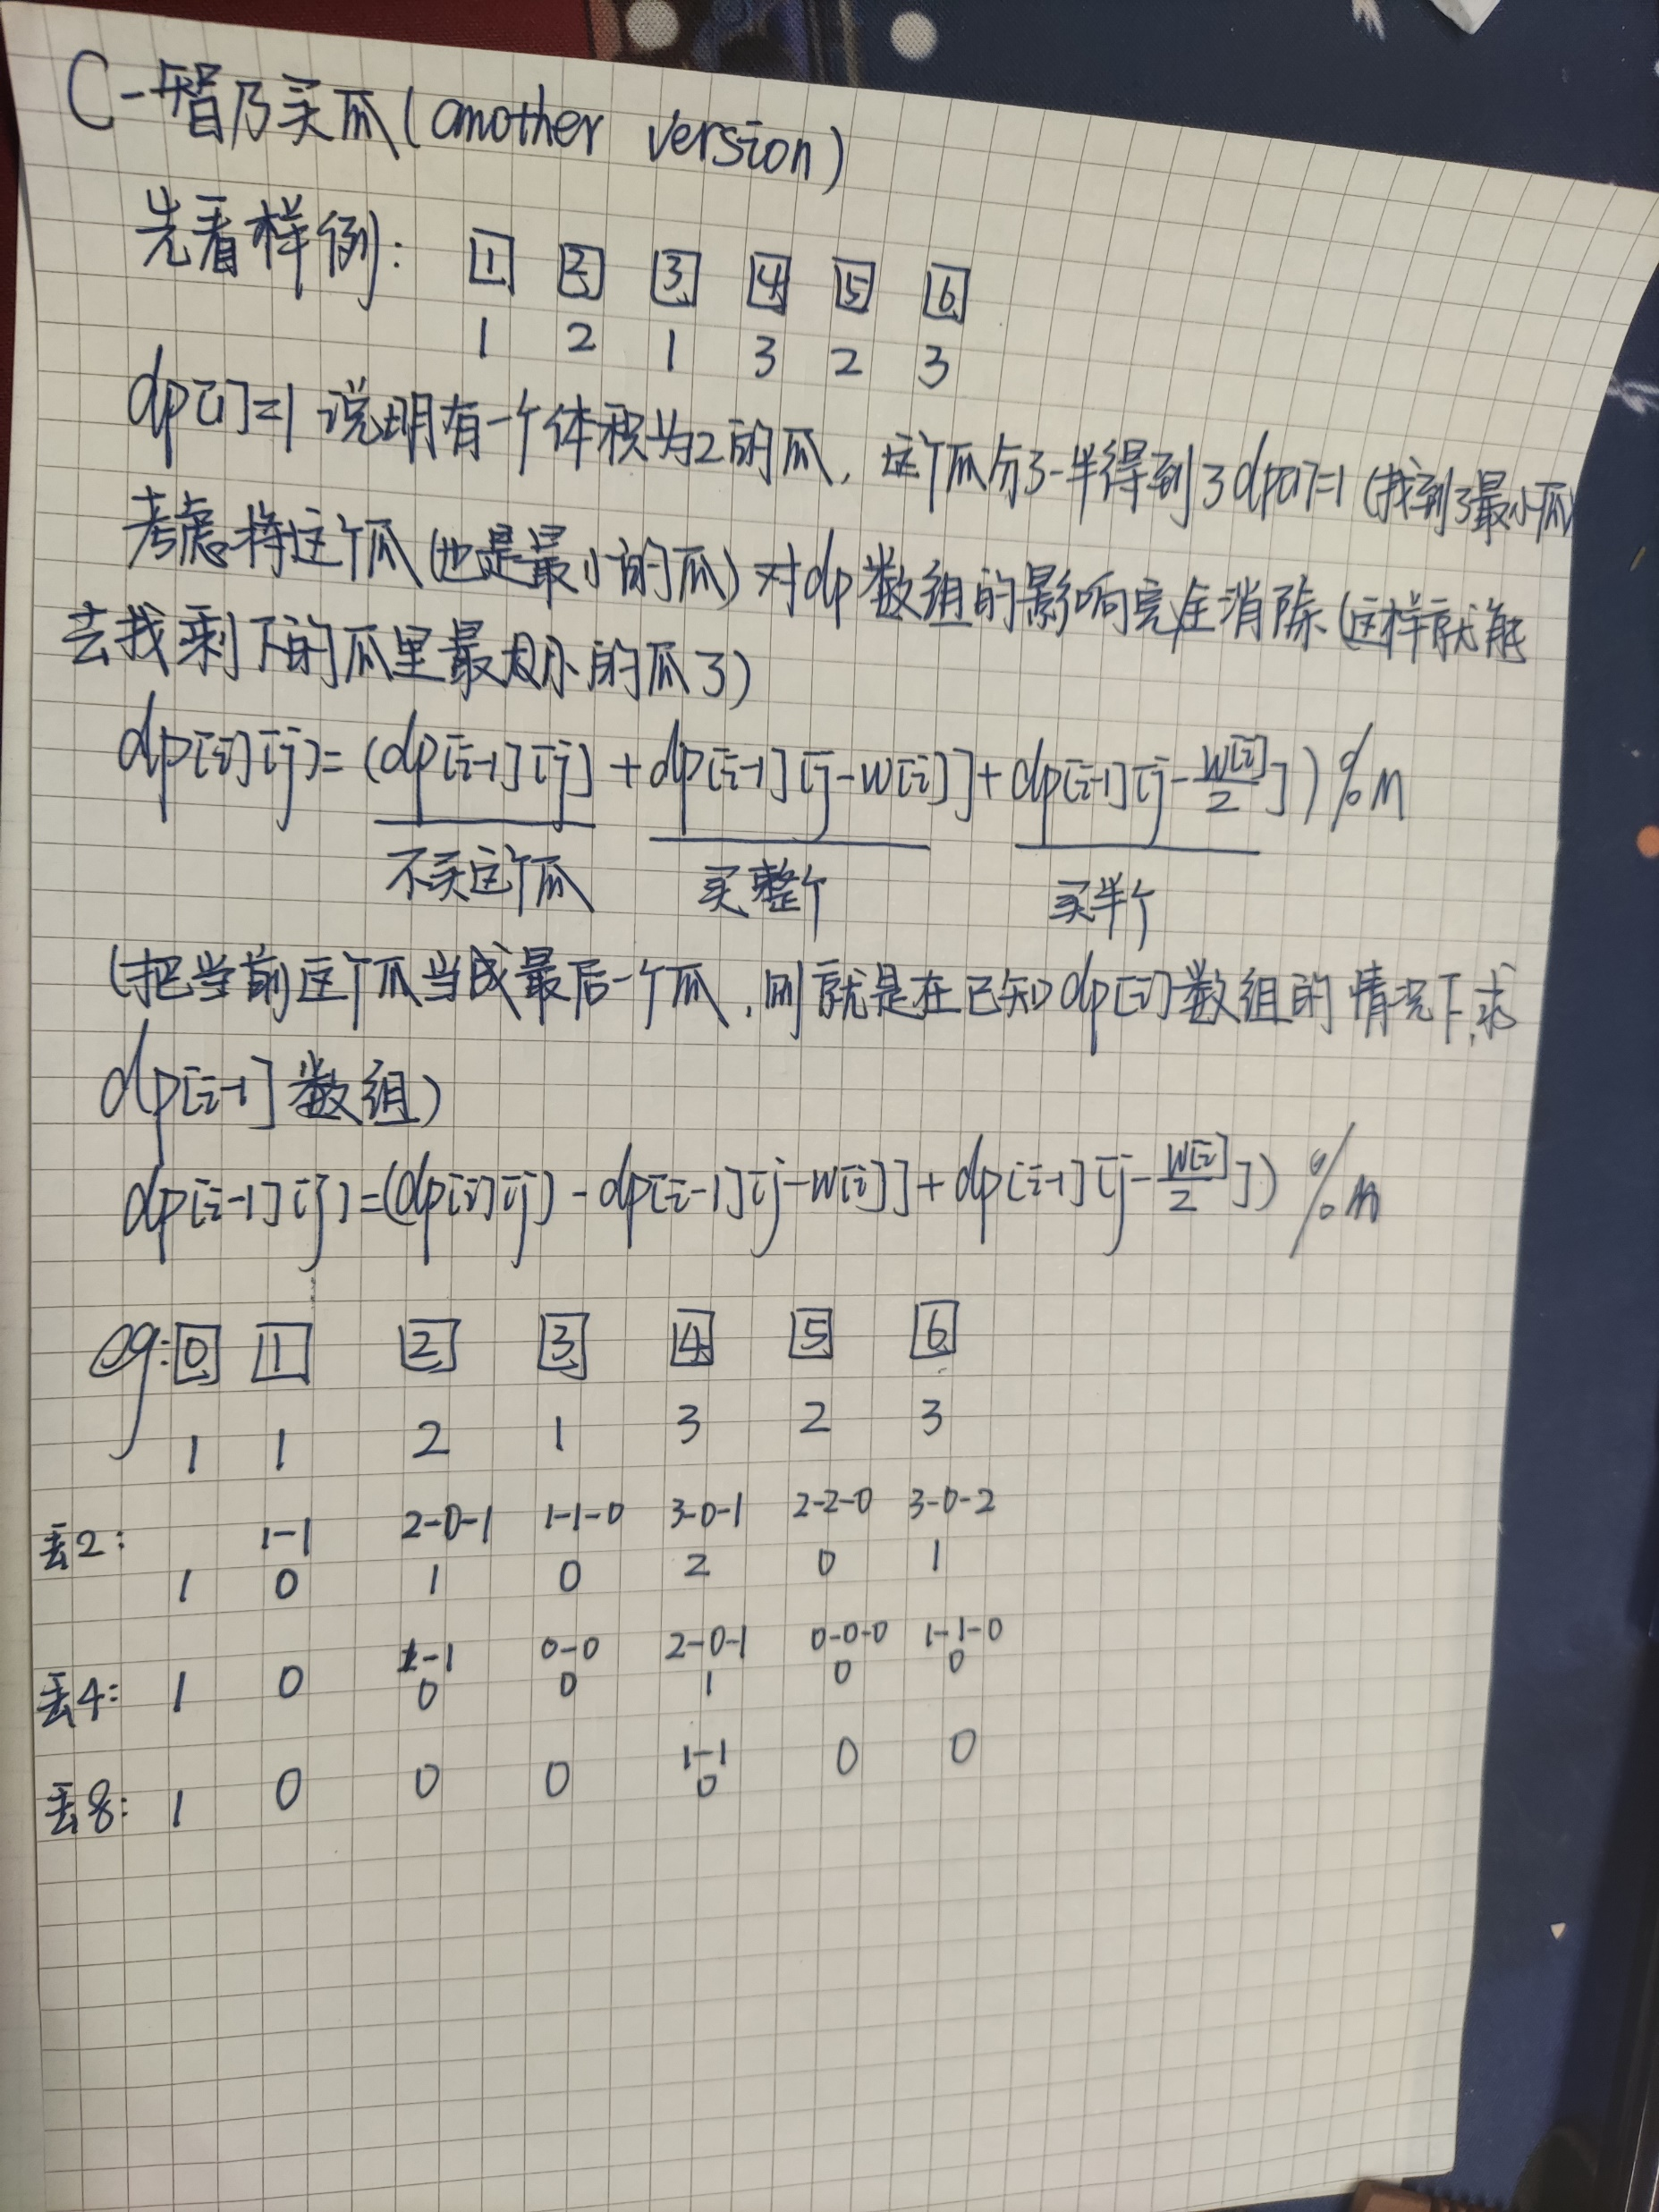 C-智乃买瓜(another version)
先看样例: 1 2 3 4 5 6
1 2 1 3 2 3
dp[1]=1 说明有一个体积为2的瓜, 这个瓜分了一半得到了dp[1]=1 (找到了最小瓜)
考虑将这个瓜(也是最小的瓜)对dp数组的影响完全消除(这样就能
去找剩下的瓜里最小的瓜了)
dp[i][j]=(dp[i-1][j]+dp[i-1][j-w[i]]+dp[i-1][j-w[i]/2])%m
不买这个瓜 买整个 买半个
(把当前这个瓜当成最后一个瓜,则就是在已知dp[i]数组的情况下,求
dp[i-1]数组)
dp[i-1][j]=(dp[i][j]-dp[i-1][j-w[i]]+dp[i-1][j-w[i]/2])%m
eg: 0 1 2 3 4 5 6
1 1 2 1 3 2 3
1-1 2-0-1 1-1-0 3-0-1 2-2-0 3-0-2
丢2: 1 0 1 0 2 0 1
1-1 0-0 2-0-1 0-0-0 1-1-0
丢4: 1 0 0 0 1 0 0
1-1
丢8: 1 0 0 0 0 0 0